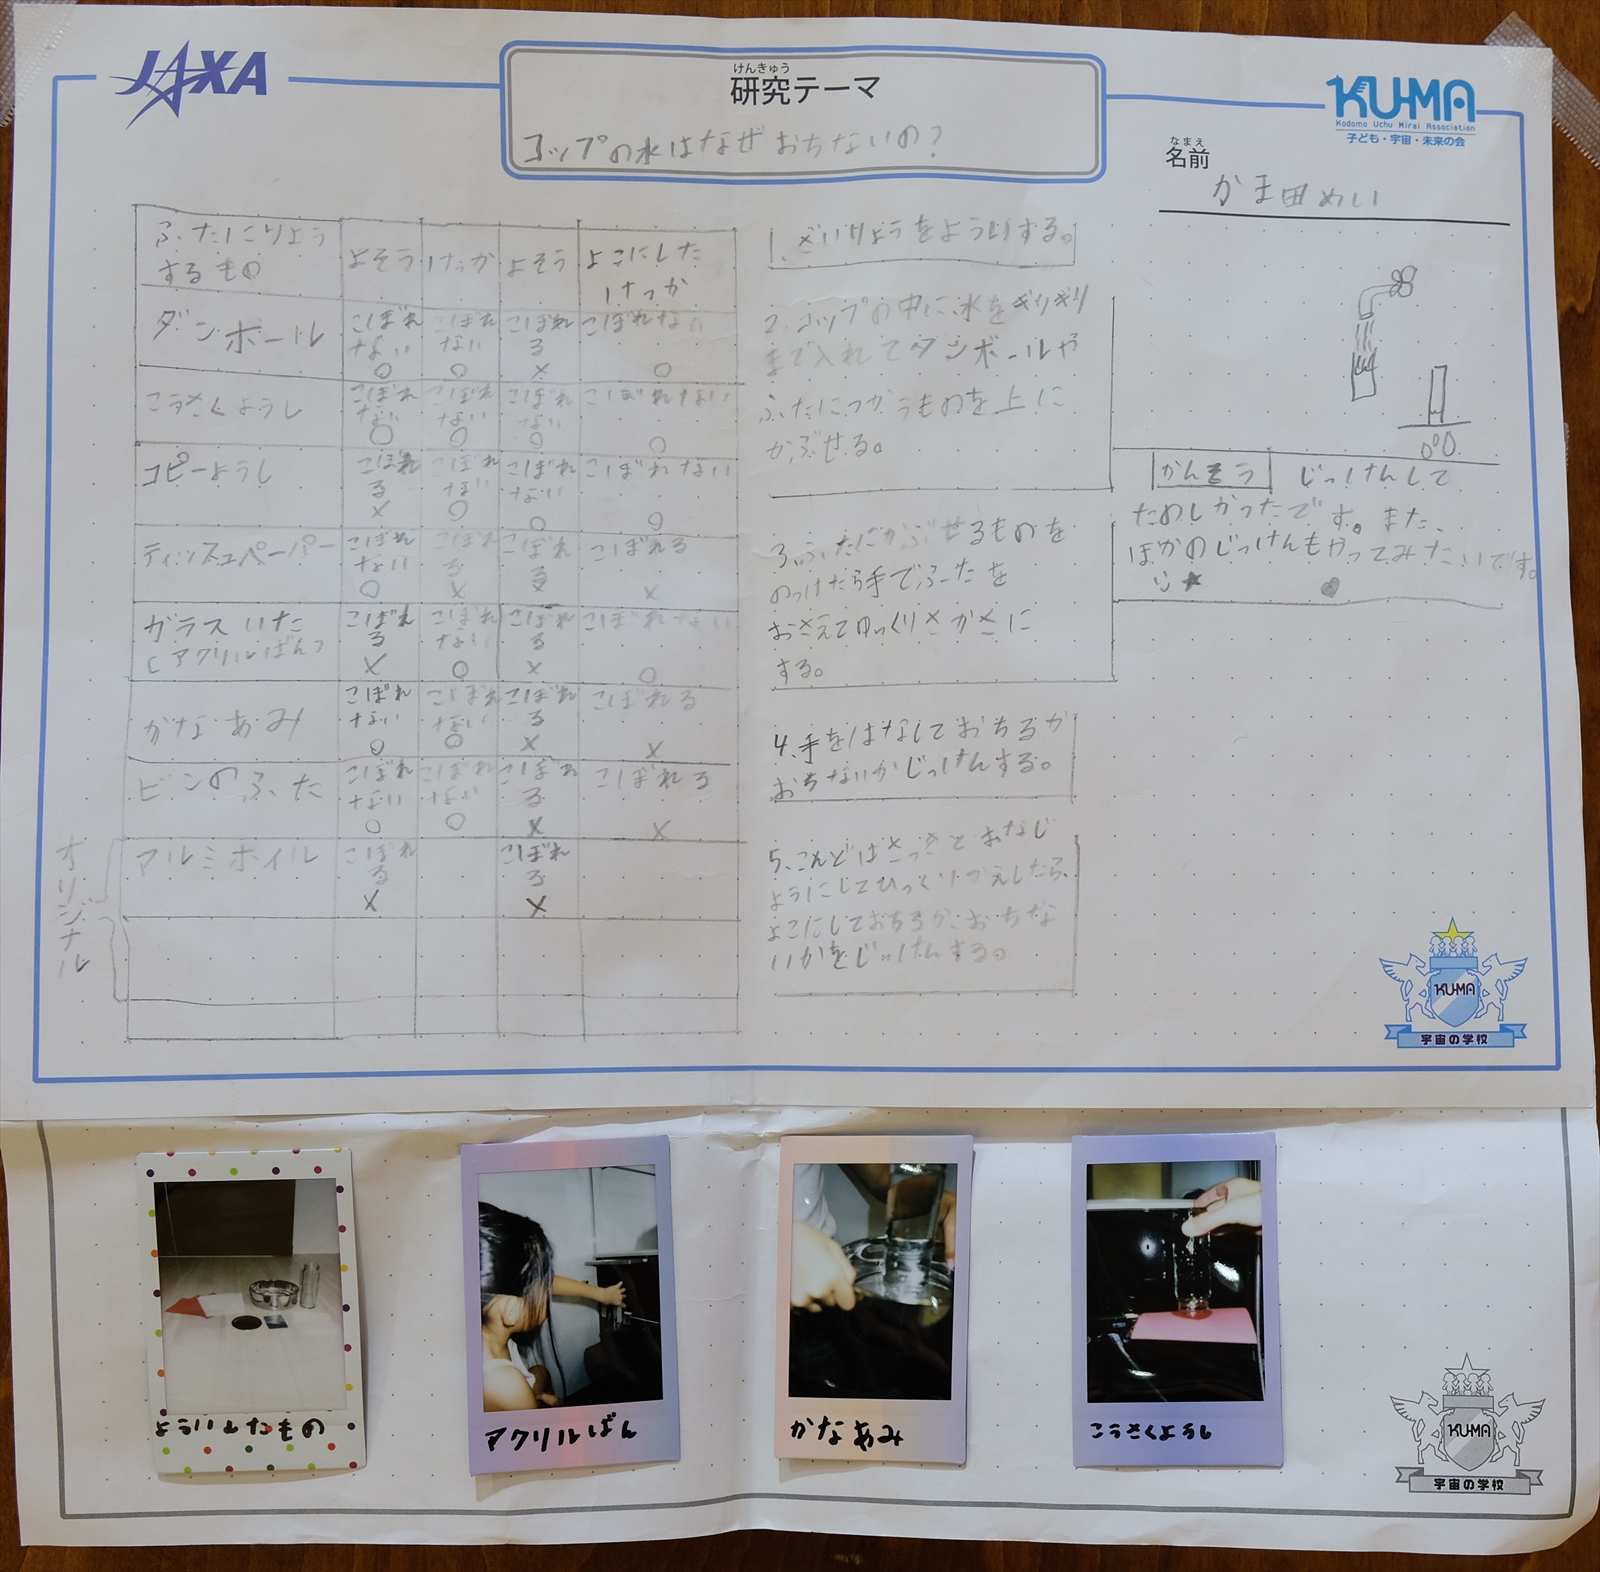 JAXA
けんきゅう
研究テーマ
コップの水はなぜおちないの？
KU-MA
Kodomo Uchu Mirai Association
子ども・宇宙・未来の会
なまえ
名前
かま田めい
ふたにりよう
するもの
よそう
けっか
よそう
よこにした
けっか
ダンボール
こぼれ
ない
○
こぼれ
ない
○
こぼれ
る
×
こぼれない
○
こうさくようし
こぼれ
ない
○
こぼれ
ない
○
こぼれ
ない
○
こぼれない
○
コピーようし
こぼれ
る
×
こぼれ
ない
○
こぼれ
ない
○
こぼれない
○
ティッスュペーパー
こぼれ
ない
○
こぼれ
る
×
こぼれ
る
×
こぼれる
×
ガラスいた
(アクリルばん)
こぼれ
る
×
こぼれ
ない
○
こぼれ
る
×
こぼれない
○
かなあみ
こぼれ
ない
○
こぼれ
ない
○
こぼれ
る
×
こぼれる
×
ビンのふた
こぼれ
ない
○
こぼれ
ない
○
こぼれ
る
×
こぼれる
×
オリジナル
アルミホイル
こぼれ
る
×
こぼれ
る
×
1、ざいりょうをよういする。
2、コップの中に水をぎりぎり
まで入れてダンボールや
ふたにつかうものを上に
かぶせる。
3、ふたにかぶせるものを
のっけたら手でふたを
おさえてゆっくりさかさに
する。
4、手をはなしておちるか
おちないかじっけんする。
5、こんどはさっきとおなじ
ようにしてひっくりかえしたら、
よこにしておちるか、おちな
いかをじっけんする。
かんそう
じっけんして
たのしかったです。また、
ほかのじっけんもやってみたいです。
KU-MA
宇宙の学校
よういしたもの
アクリルばん
かなあみ
こうさくようし
KU-MA
宇宙の学校